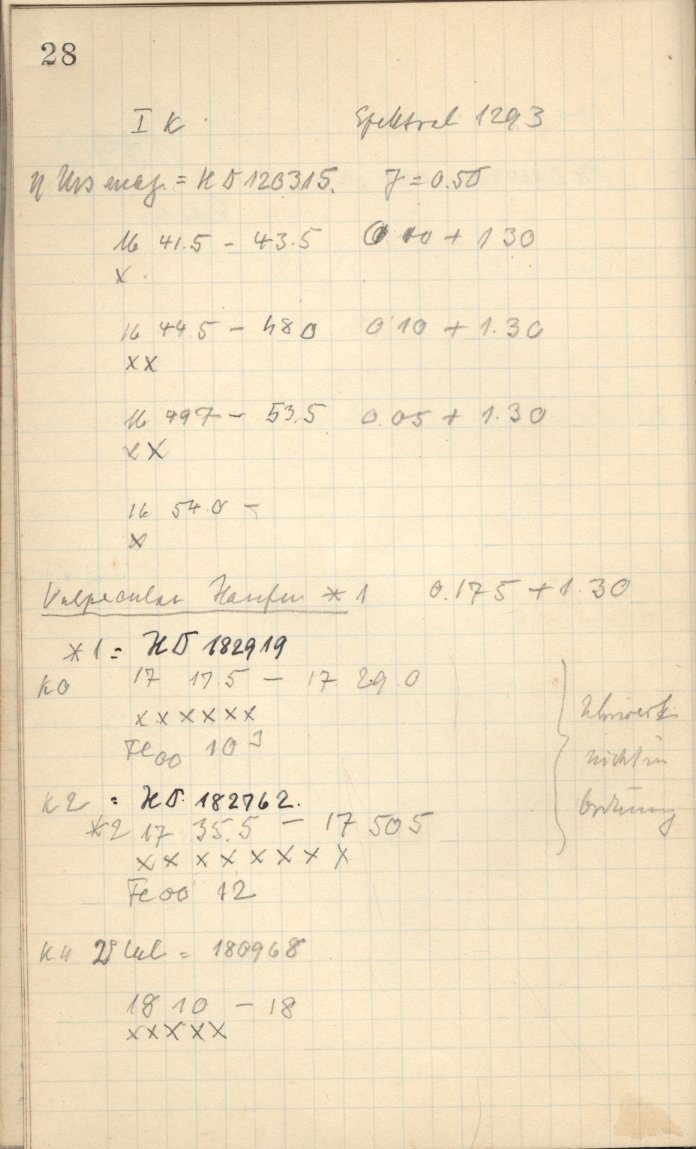 28
I K Spektral 1293
η Urs maj. = HD 120315. J = 0.50
16 41.5 – 43.5 0 10 + 1 30
x
16 44.5 – 48 0 0 10 + 1.30
xx
16 497 – 53.5 0.05 + 1.30
xx
16 54.0 –
x
Vulpecular Haufen * 1 0.175 + 1.30
*1 = HD 182919
K0 17 17.5 – 17 29.0
xxxxxx
Fe00 10 3
K2 = HD 182762.
*2 17 35.5 – 17 505
xxxxxxxx
Fe00 12
Uhrwerk
nicht in
Ordnung
K4 2 Vul = 180968
18 10 – 18
xxxxx